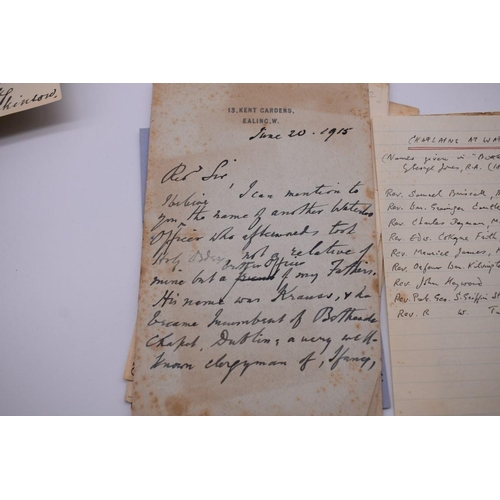 kinson.
15, KENT GARDENS,
EALING, W.
June 20. 1915
Revd Sir
I believe I can mention to
you the name of another Waterloo
Officer who afterwards took
Holy Orders not a relative of
mine but a brother Officer of my Fathers.
His name was Krauss, & he
became Incumbent of
Chapel, Dublin; a very well-
known clergyman of, I fancy,
CHAPLAINS AT WA
(Names given in "
George Jones, R.A. (18
Rev. Samuel Briscall, M
Rev. Ben.
Rev. Charles
Rev. Edw. Cokayne Frith
Rev. Maurice James, M
Rev.
Rev. John Hayward
Rev. G. Griffin St
Rev. R W. Tu